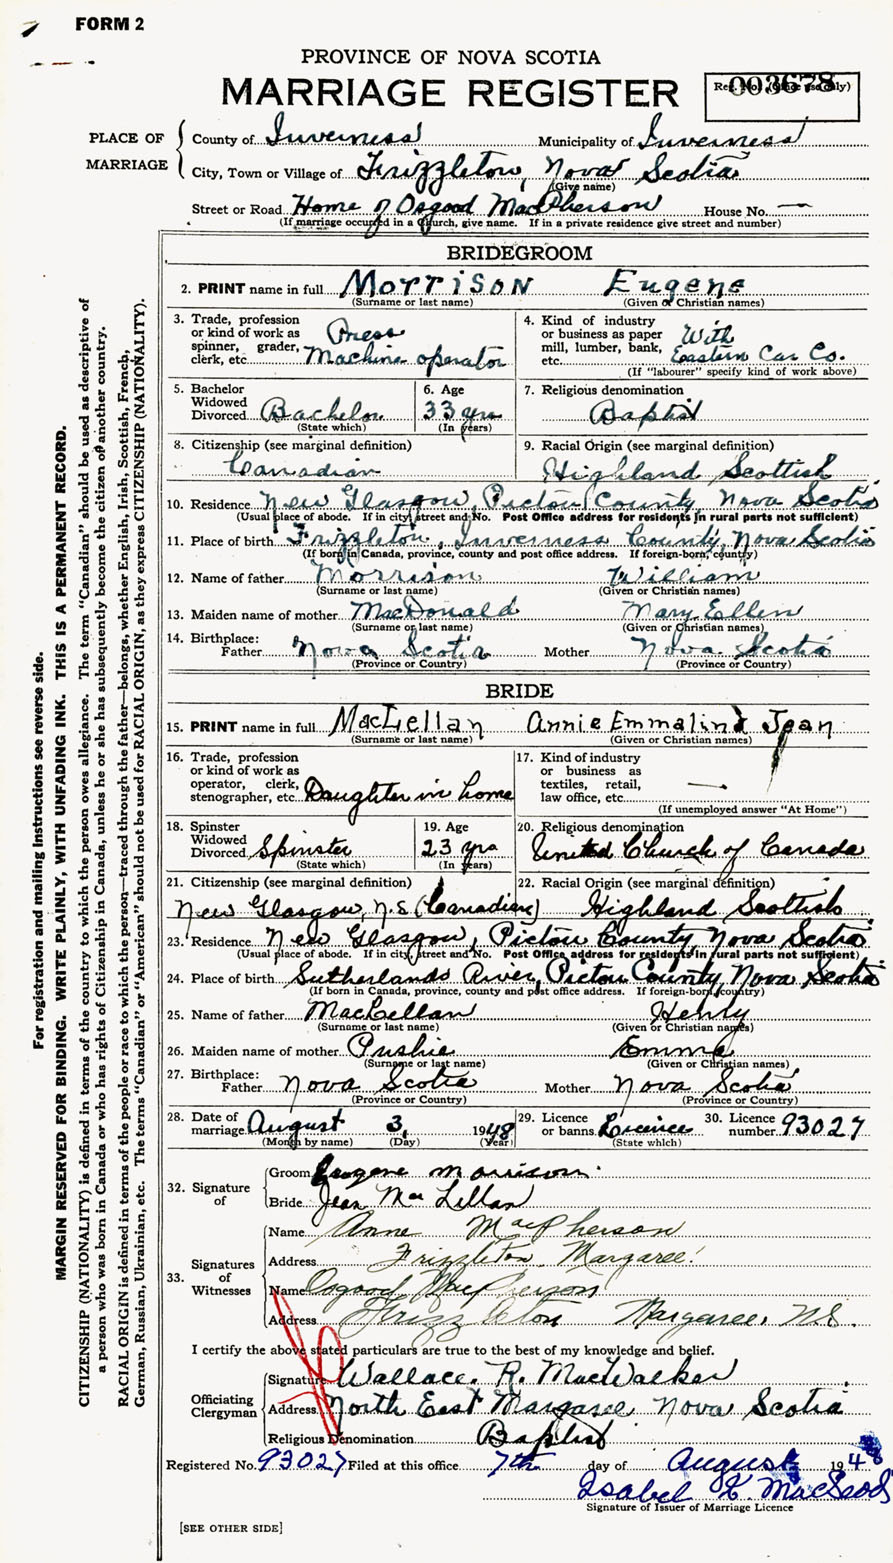 FORM 2
PROVINCE OF NOVA SCOTIA
MARRIAGE REGISTER
Reg. No. (Office use only) 003678
PLACE OF MARRIAGE
County of Inverness Municipality of Inverness
City, Town or Village of Frizzleton, Nova Scotia
(Give name)
Street or Road Home of Osgood MacPherson House No. —
(If marriage occurred in a Church, give name. If in a private residence give street and number)
BRIDEGROOM
2. PRINT name in full Morrison Eugene
(Surname or last name) (Given or Christian names)
3. Trade, profession or kind of work as spinner, grader, clerk, etc. Press Machine operator
4. Kind of industry or business as paper mill, lumber, bank, etc. With Eastern Car Co.
(If "labourer" specify kind of work above)
5. Bachelor Widowed Divorced Bachelor
(State which)
6. Age 33 yrs
(In years)
7. Religious denomination
Baptist
8. Citizenship (see marginal definition)
Canadian
9. Racial Origin (see marginal definition)
Highland Scottish
10. Residence New Glasgow, Pictou County, Nova Scotia
(Usual place of abode. If in city street and No. Post Office address for residents in rural parts not sufficient)
11. Place of birth Frizzleton, Inverness County, Nova Scotia
(If born in Canada, province, county and post office address. If foreign-born, country)
12. Name of father Morrison William
(Surname or last name) (Given or Christian names)
13. Maiden name of mother MacDonald Mary Ellen
(Surname or last name) (Given or Christian names)
14. Birthplace: Father Nova Scotia Mother Nova Scotia
(Province or Country) (Province or Country)
BRIDE
15. PRINT name in full MacLellan Annie Emmaline Jean
(Surname or last name) (Given or Christian names)
16. Trade, profession or kind of work as operator, clerk, stenographer, etc. Daughter in home
17. Kind of industry or business as textiles, retail, law office, etc. —
(If unemployed answer "At Home")
18. Spinster Widowed Divorced Spinster
(State which)
19. Age 23 yrs
(In years)
20. Religious denomination
United Church of Canada
21. Citizenship (see marginal definition)
New Glasgow, N.S. (Canadian)
22. Racial Origin (see marginal definition)
Highland Scottish
23. Residence New Glasgow, Pictou County, Nova Scotia
(Usual place of abode. If in city street and No. Post Office address for residents in rural parts not sufficient)
24. Place of birth Sutherlands River, Pictou County, Nova Scotia
(If born in Canada, province, county and post office address. If foreign-born, country)
25. Name of father MacLellan Henry
(Surname or last name) (Given or Christian names)
26. Maiden name of mother Pushie Emma
(Surname or last name) (Given or Christian names)
27. Birthplace: Father Nova Scotia Mother Nova Scotia
(Province or Country) (Province or Country)
28. Date of marriage August 3, 1948
(Month by name) (Day) (Year)
29. Licence or banns Licence
(State which)
30. Licence number 93027
32. Signature of
Groom Eugene Morrison
Bride Jean MacLellan
33. Signatures of Witnesses
Name Anne MacPherson
Address Frizzleton, Margaree
Name Osgood MacPherson
Address Frizzleton Margaree, N.S.
I certify the above stated particulars are true to the best of my knowledge and belief.
Officiating Clergyman
Signature Wallace. R. MacWalker
Address North East Margaree Nova Scotia
Religious Denomination Baptist
Registered No. 93027 Filed at this office 7th day of August 1948
Isabel K. MacLeod
Signature of Issuer of Marriage Licence
[SEE OTHER SIDE]
For registration and mailing instructions see reverse side.
MARGIN RESERVED FOR BINDING. WRITE PLAINLY, WITH UNFADING INK. THIS IS A PERMANENT RECORD.
CITIZENSHIP (NATIONALITY) is defined in terms of the country to which the person owes allegiance. The term "Canadian" should be used as descriptive of
a person who was born in Canada or who has rights of Citizenship in Canada, unless he or she has subsequently become the citizen of another country.
RACIAL ORIGIN is defined in terms of the people or race to which the person—traced through the father—belongs, whether English, Irish, Scottish, French,
German, Russian, Ukrainian, etc. The terms "Canadian" or "American" should not be used for RACIAL ORIGIN, as they express CITIZENSHIP (NATIONALITY).